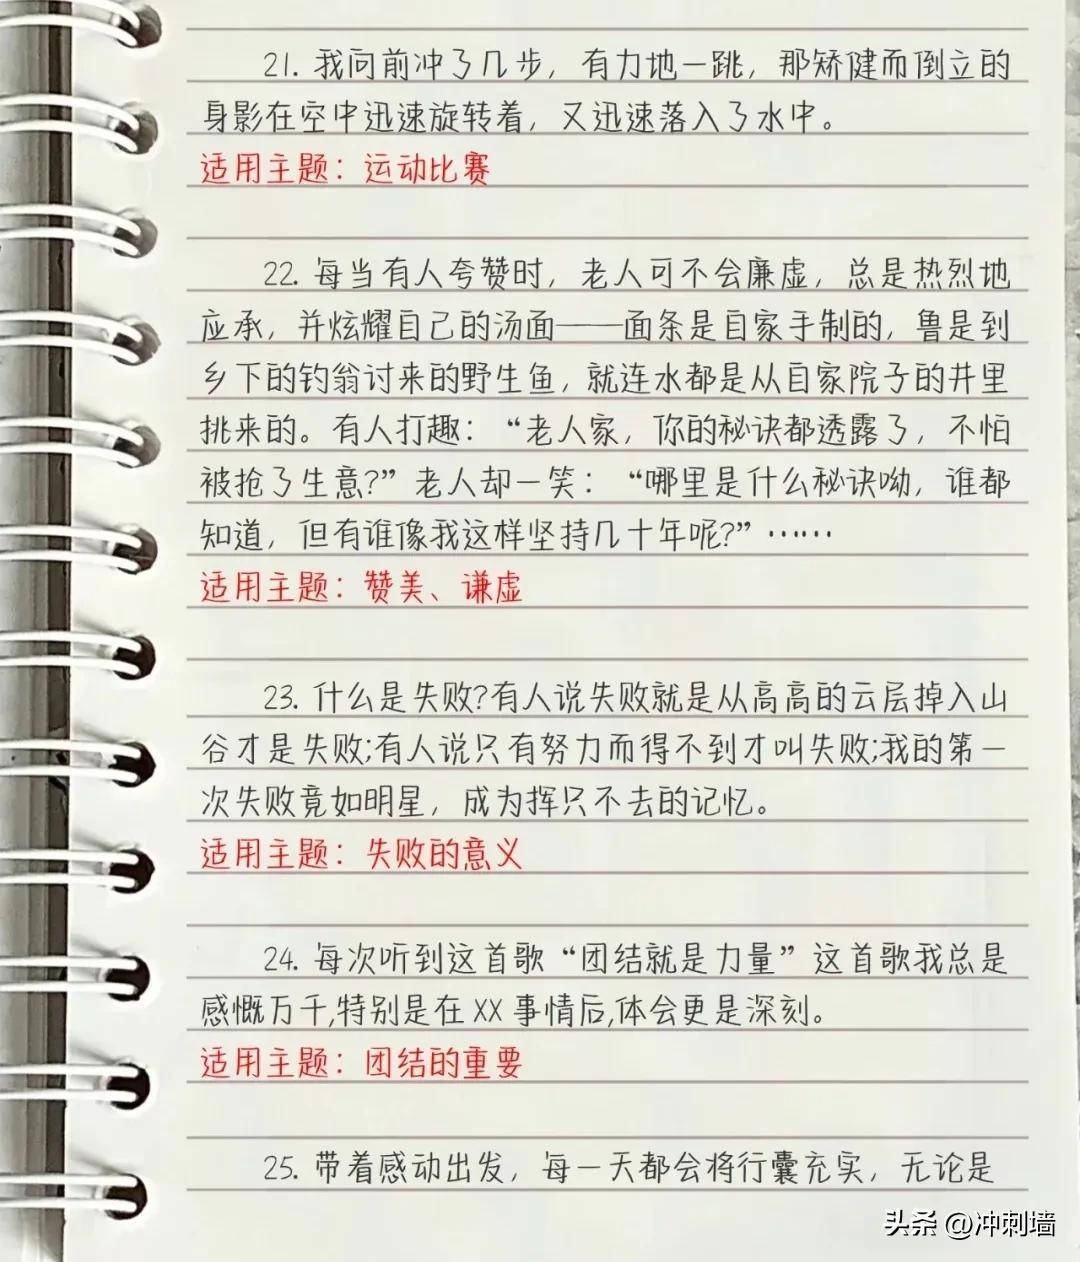 21. 我向前冲了几步，有力地一跳，那矫健而倒立的
身影在空中迅速旋转着，又迅速落入了水中。
适用主题：运动比赛
22. 每当有人夸赞时，老人可不会廉虚，总是热烈地
应承，并炫耀自己的汤面——面条是自家手制的，鲁是到
乡下的钓翁讨来的野生鱼，就连水都是从自家院子的井里
挑来的。有人打趣：“老人家，你的秘诀都透露了，不怕
被抢了生意?”老人却一笑：“哪里是什么秘诀呦，谁都
知道，但有谁像我这样坚持几十年呢?”……
适用主题：赞美、谦虚
23. 什么是失败?有人说失败就是从高高的云层掉入山
谷才是失败;有人说只有努力而得不到才叫失败;我的第一
次失败竟如明星，成为挥只不去的记忆。
适用主题：失败的意义
24. 每次听到这首歌“团结就是力量”这首歌我总是
感慨万千,特别是在XX事情后,体会更是深刻。
适用主题：团结的重要
25. 带着感动出发，每一天都会将行囊充实，无论是
头条 @冲刺墙